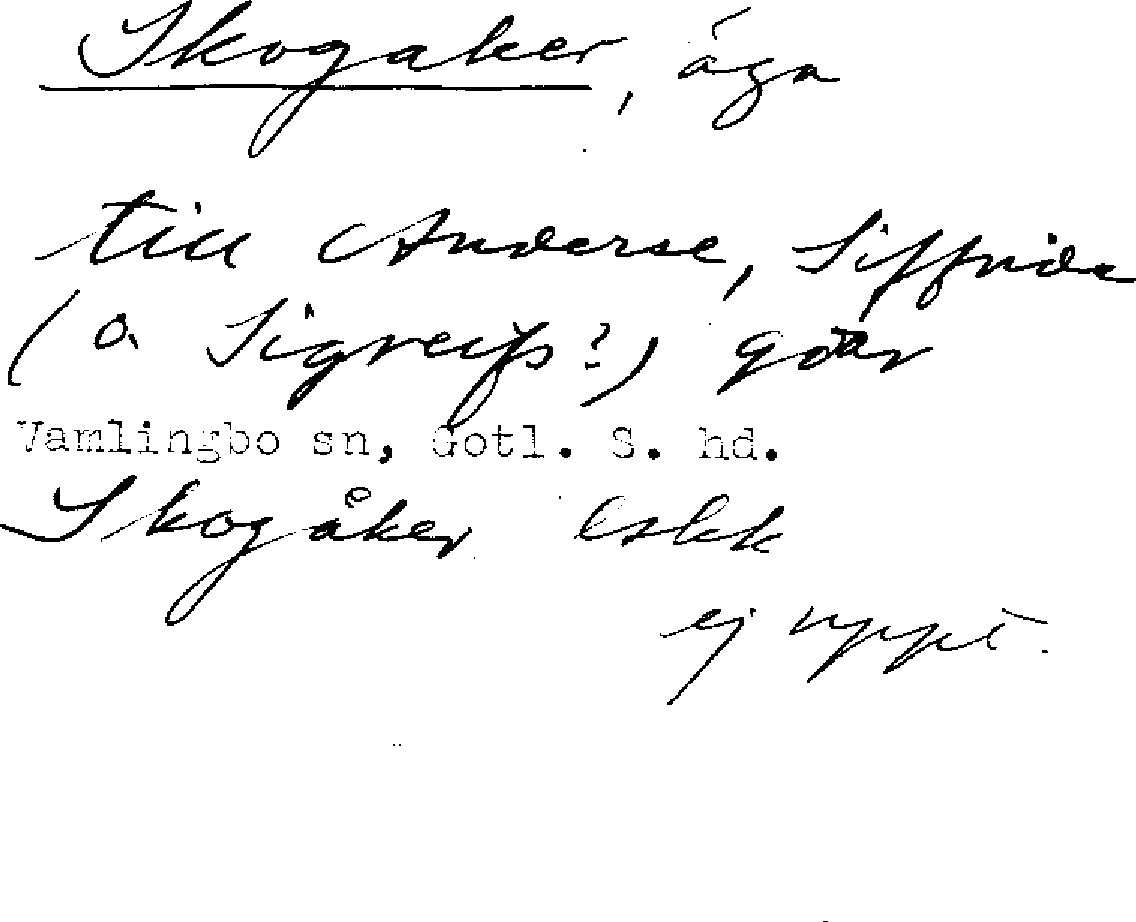 Skogaker, äga
till Anderse, Siffride
(o. Sigreifs?) går
Vamlingbo sn, Gotl. S. hd.
Skogåker Eskk
ej uppt.